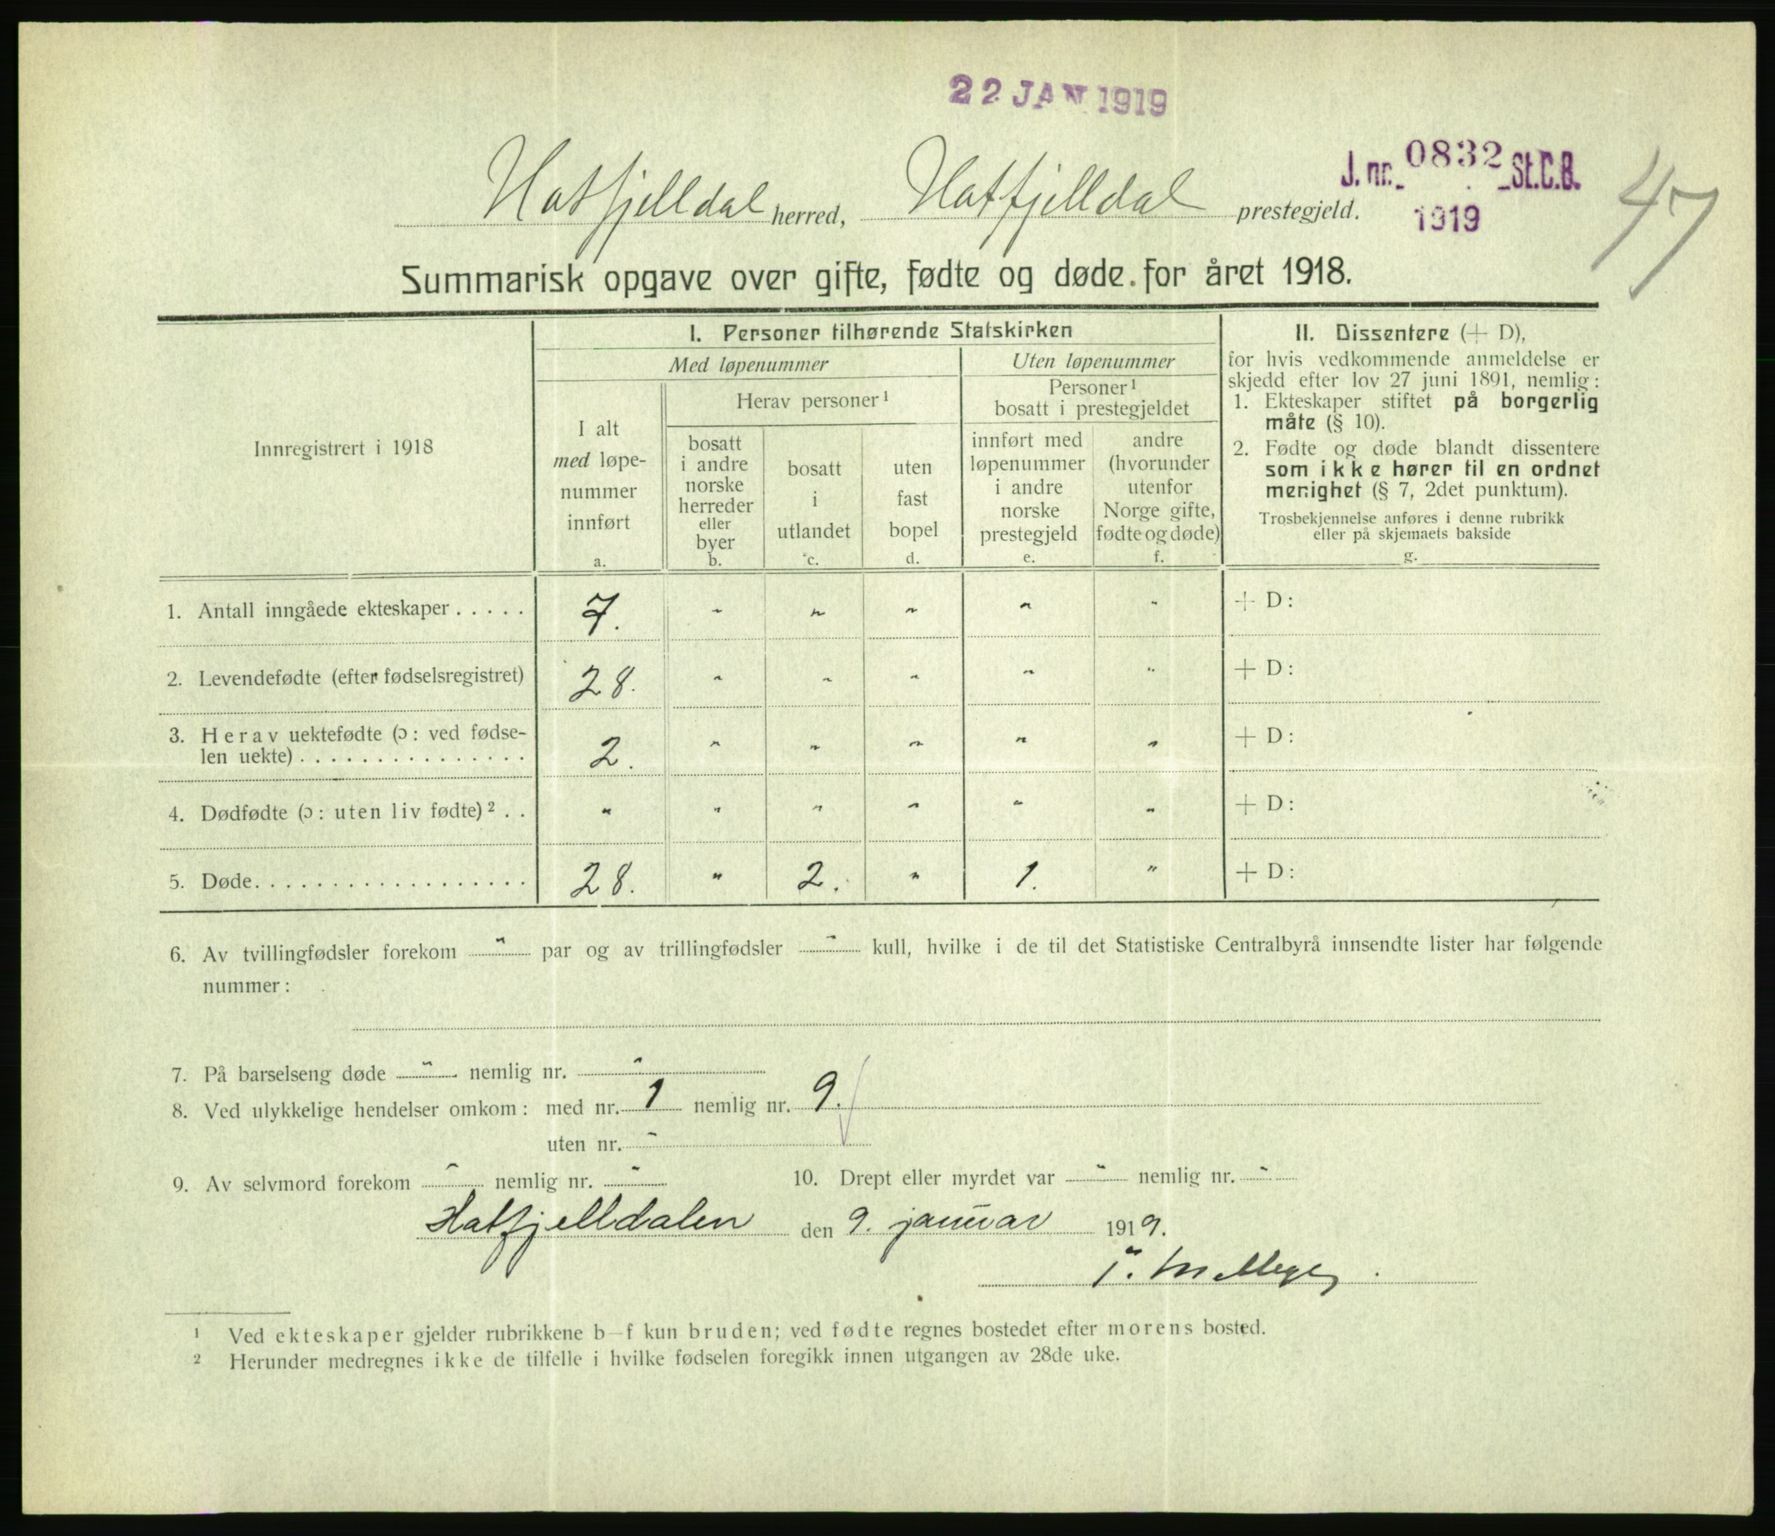 22 JAN 1919
Hatfjelldal herred, Hatfjelldal prestegjeld.
J. nr. 0832 St.C.B.
1919
47
Summarisk opgave over gifte, fødte og døde for året 1918.
Innregistrert i 1918
I. Personer tilhørende Statskirken
Med løpenummer
Uten løpenummer
I alt
med løpe-
nummer
innført
a.
Herav personer¹
bosatt
i andre
norske
herreder
eller
byer
b.
bosatt
i
utlandet
c.
uten
fast
bopel
d.
Personer¹
bosatt i prestegjeldet
innført med
løpenummer
i andre
norske
prestegjeld
e.
andre
(hvorunder
utenfor
Norge gifte,
fødte og døde)
f.
II. Dissentere (+ D),
for hvis vedkommende anmeldelse er
skjedd efter lov 27 juni 1891, nemlig:
1. Ekteskaper stiftet på borgerlig
måte (§ 10).
2. Fødte og døde blandt dissentere
som ikke hører til en ordnet
menighet (§ 7, 2det punktum).
Trosbekjennelse anføres i denne rubrikk
eller på skjemaets bakside
g.
1. Antall inngåede ekteskaper ..... 7. " " " " " + D:
2. Levendefødte (efter fødselsregistret) 28. " " " " " + D:
3. Herav uektefødte (ɔ: ved fødse-
len uekte) ............... 2. " " " " " + D:
4. Dødfødte (ɔ: uten liv fødte)² .. " " " " " " + D:
5. Døde.................. 28. " 2. " 1. " + D:
6. Av tvillingfødsler forekom " par og av trillingfødsler " kull, hvilke i de til det Statistiske Centralbyrå innsendte lister har følgende
nummer:
7. På barselseng døde " nemlig nr. "
8. Ved ulykkelige hendelser omkom: med nr. 1 nemlig nr. 9.
uten nr. "
9. Av selvmord forekom " nemlig nr. " 10. Drept eller myrdet var " nemlig nr. "
Hatfjelldalen den 9. januar 1919.
¹ Ved ekteskaper gjelder rubrikkene b–f kun bruden; ved fødte regnes bostedet efter morens bosted.
² Herunder medregnes ikke de tilfelle i hvilke fødselen foregikk innen utgangen av 28de uke.